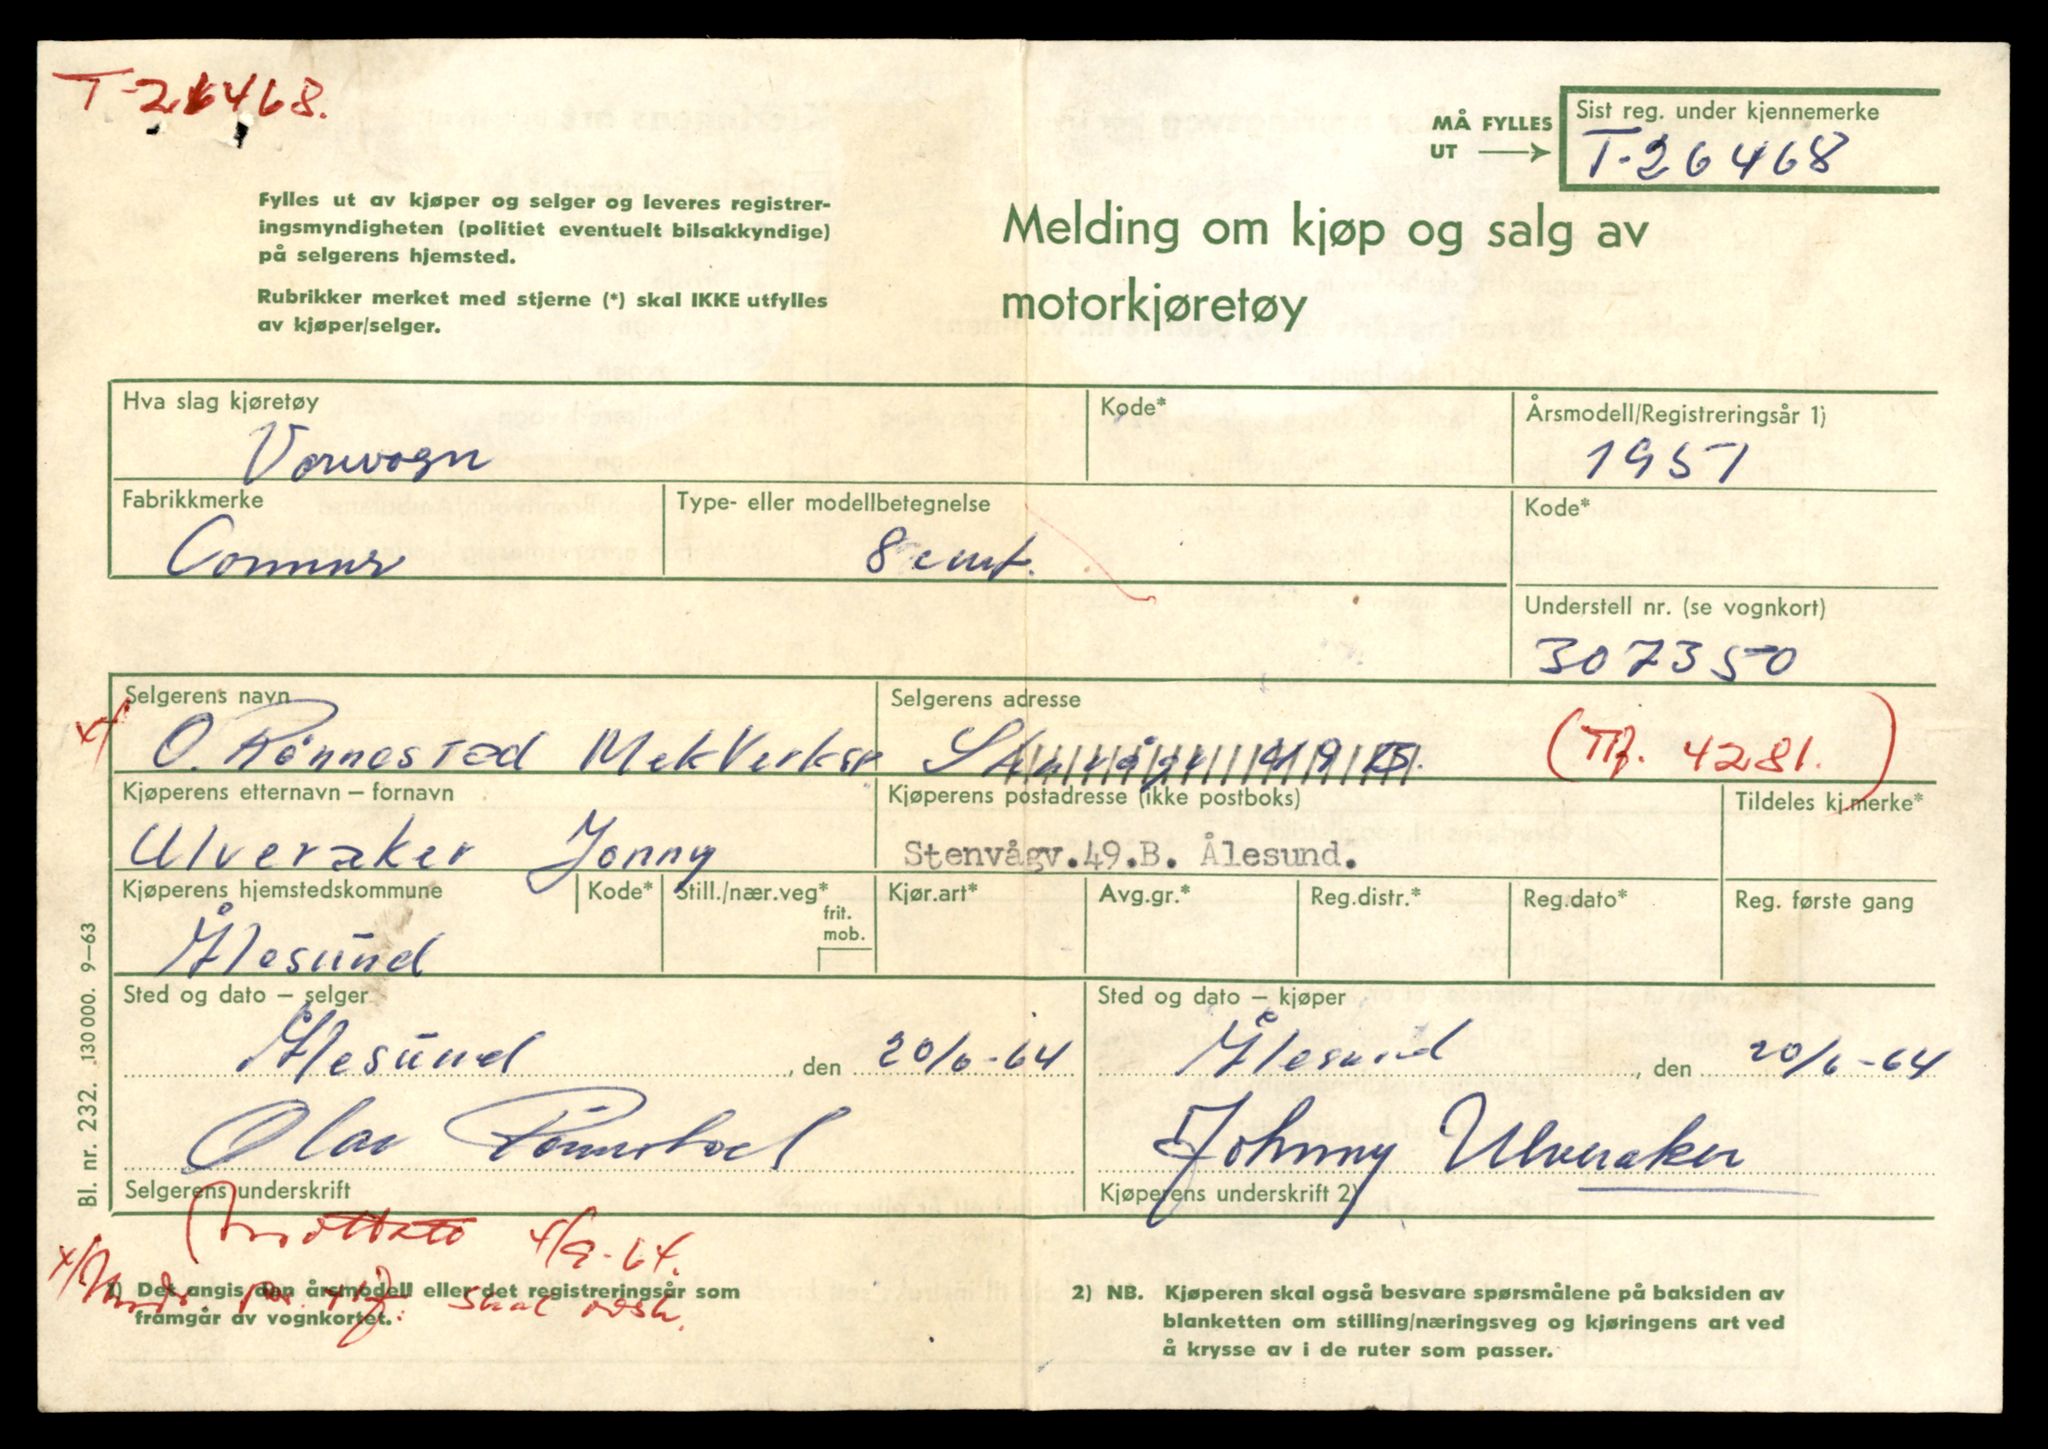 T-26468.
MÅ FYLLES
UT
Sist reg. under kjennemerke
T-26468
Fylles ut av kjøper og selger og leveres registrer-
ingsmyndigheten (politiet eventuelt bilsakkyndige)
på selgerens hjemsted.
Rubrikker merket med stjerne (*) skal IKKE utfylles
av kjøper/selger.
Melding om kjøp og salg av
motorkjøretøy
Hva slag kjøretøy
Varevogn
Kode*
Årsmodell/Registreringsår 1)
1957
Fabrikkmerke
Commer
Type- eller modellbetegnelse
8 cwt.
Kode*
Understell nr. (se vognkort)
307350
Selgerens navn
x/ O. Rønnestad Mek Verksr
Selgerens adresse
(Tlf. 4281.)
Kjøperens etternavn – fornavn
Ulveraker Jonny
Kjøperens postadresse (ikke postboks)
Stenvågv.49.B. Ålesund.
Tildeles kj.merke*
Kjøperens hjemstedskommune
Ålesund
Kode*
Still./nær.veg*
frit.
mob.
Kjør.art*
Avg.gr.*
Reg.distr.*
Reg.dato*
Reg. første gang
Sted og dato – selger
Ålesund, den 20/6-64
Sted og dato – kjøper
Ålesund, den 20/6-64
Olav Rønnestad
Selgerens underskrift
Johnny Ulveraker
Kjøperens underskrift 2)
Mottatt 4/9-64.
x/ skal
1) Det angis den årsmodell eller det registreringsår som
framgår av vognkortet.
2) NB. Kjøperen skal også besvare spørsmålene på baksiden av
blanketten om stilling/næringsveg og kjøringens art ved
å krysse av i de ruter som passer.
Bl. nr. 232. 130 000. 9–63